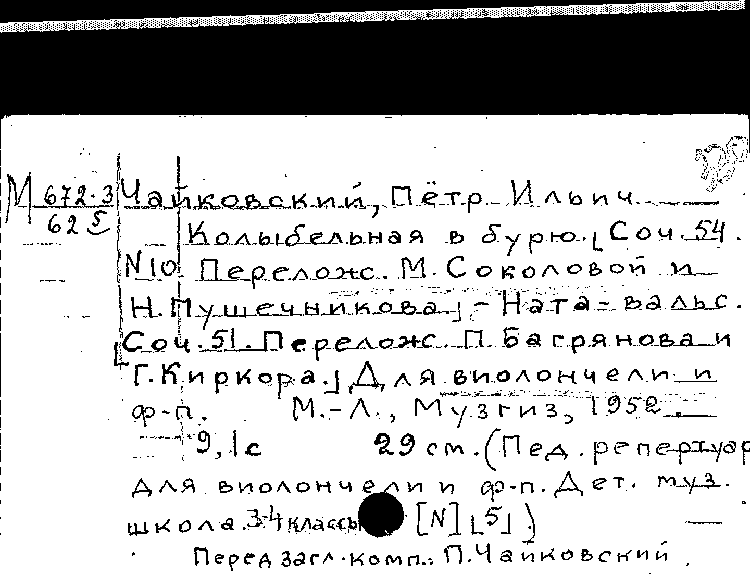 М 672-3 Чайковский, Пётр Ильич
62 5
Колыбельная в бурю. [Соч. 54.
N 10 Перелож. М. Соколовой и
Н. Пушечникова] - Ната-вальс.
[Соч. 51. Перелож. П. Багрянова и
Г. Киркора.] Для виолончели и
ф-п. М.-Л., Музгиз, 1952.
9, 1 с 29 см. (Пед. репертуар
для виолончели и ф-п. Дет. муз.
школа. 3-4 классы [N] [5].)
Перед загл. комп.: П. Чайковский.